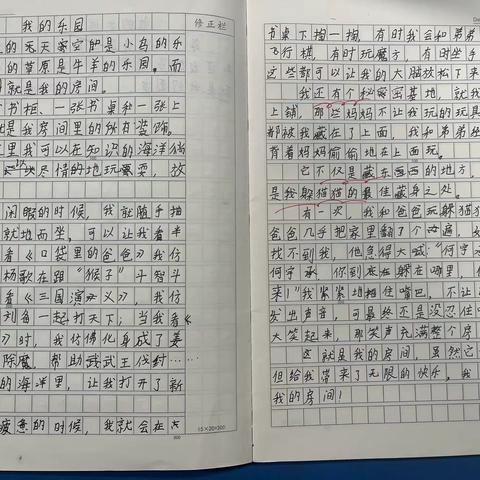 我的乐园
修正栏
的无天密空的是小鸟的乐
的草原是牛羊的乐园。而
就是我的房间。
书柜、一张书桌和一张上
是我房间里的所有装饰。
里我可以在知识的海洋徜
尽情的地玩耍,放
闲暇的时候,我就随手抽
就地而坐,可以让我看半
看《口袋里的爸爸》我仿
杨歌在跟“猴子”斗智斗
看《三国演义》,我仿
刘备一起打天下;当我看《
》时,我仿佛化身成了姜
除魔,帮助武王伐纣……
的海洋里,让我打开了新
疲惫的时候,我就会在
15×20=300
书桌下掏一掏,有时我会和弟弟
飞行棋,有时玩魔方,有时坐手
这些都可以让我的大脑放松下来
我还有个秘密基地,就
上铺,那些妈妈不让我玩的玩具
都被我藏在了上面,我和弟弟
背着妈妈偷偷地在上面玩。
它不仅是藏东西的地方,
是我躲猫猫的最佳藏身之处。
有一次,我和爸爸玩躲猫
爸爸几乎把家里翻了个遍,
找不到我,他急得大喊:“何宇
何宇承,你到底躲在哪里,
来!”我紧紧地捂住嘴巴,不让
发出声音,可最终还是没忍住
大笑起来,那笑声充满整个房
这就是我的房间,虽然它
但给我带来了无限的快乐,我
我的房间!